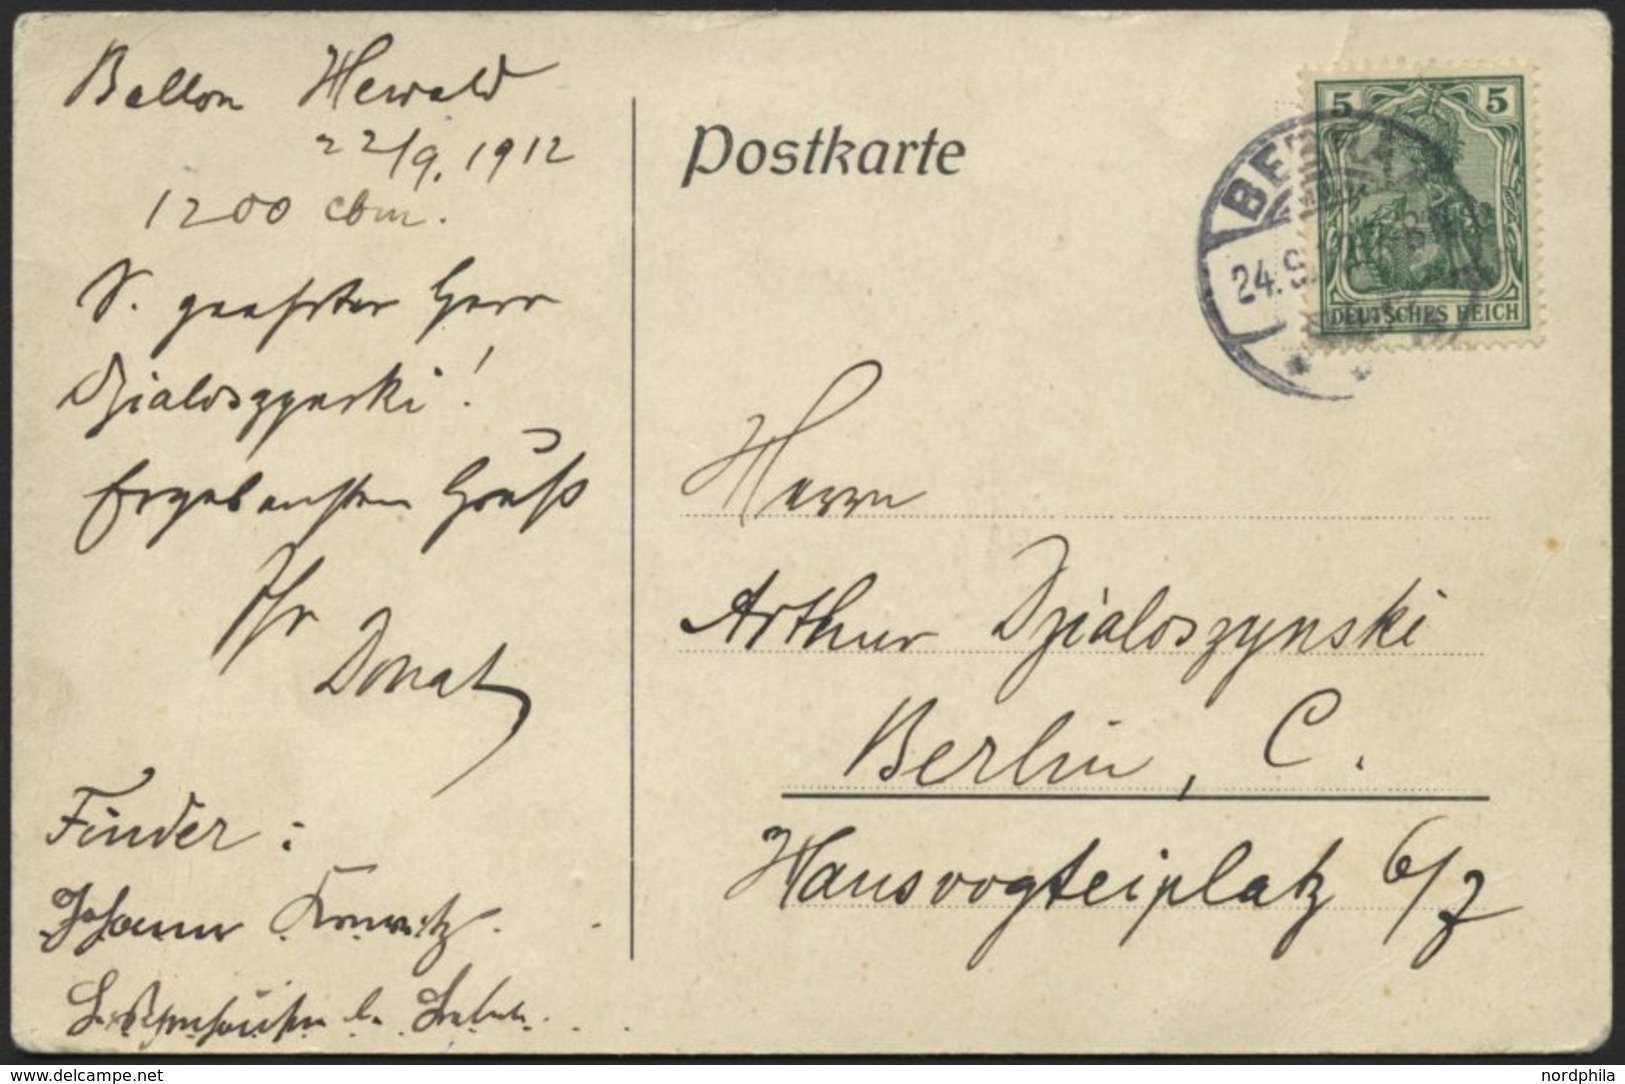 Ballon Hewald
22/9. 1912
1200 cbm.
S. geehrter Herr
Dzialoszynski!
Ergebensten Gruß
Ihr
Donat
Finder:
Johann
Postkarte
5 5
BERLIN
24.9.
DEUTSCHES REICH
Herrn
Arthur Dzialoszynski
Berlin, C.
Hausvogteiplatz 6/7
www.delcampe.net
nordphila